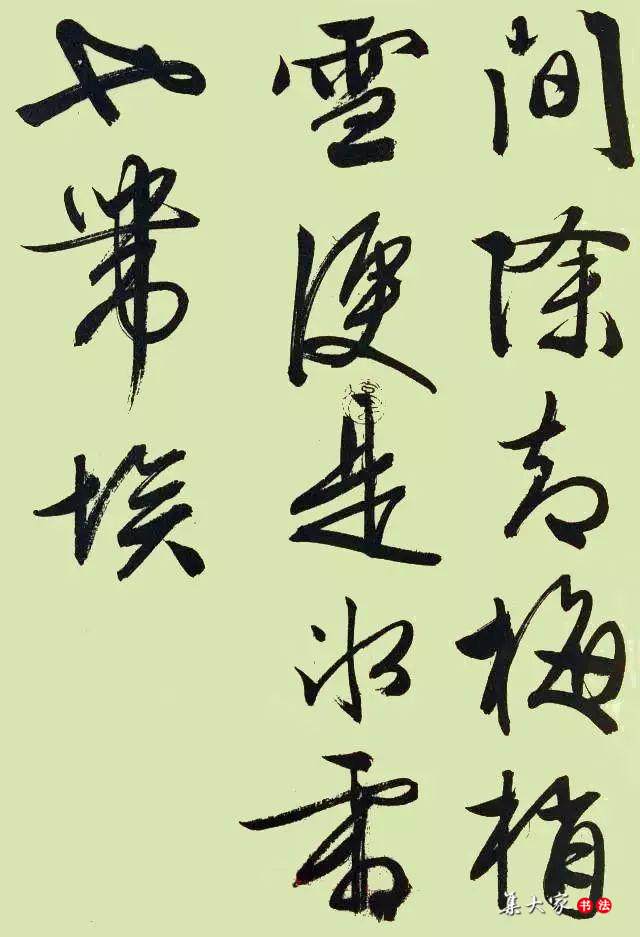 間除却梅梢
雪便是冰霜
也帶埃
集大家书法